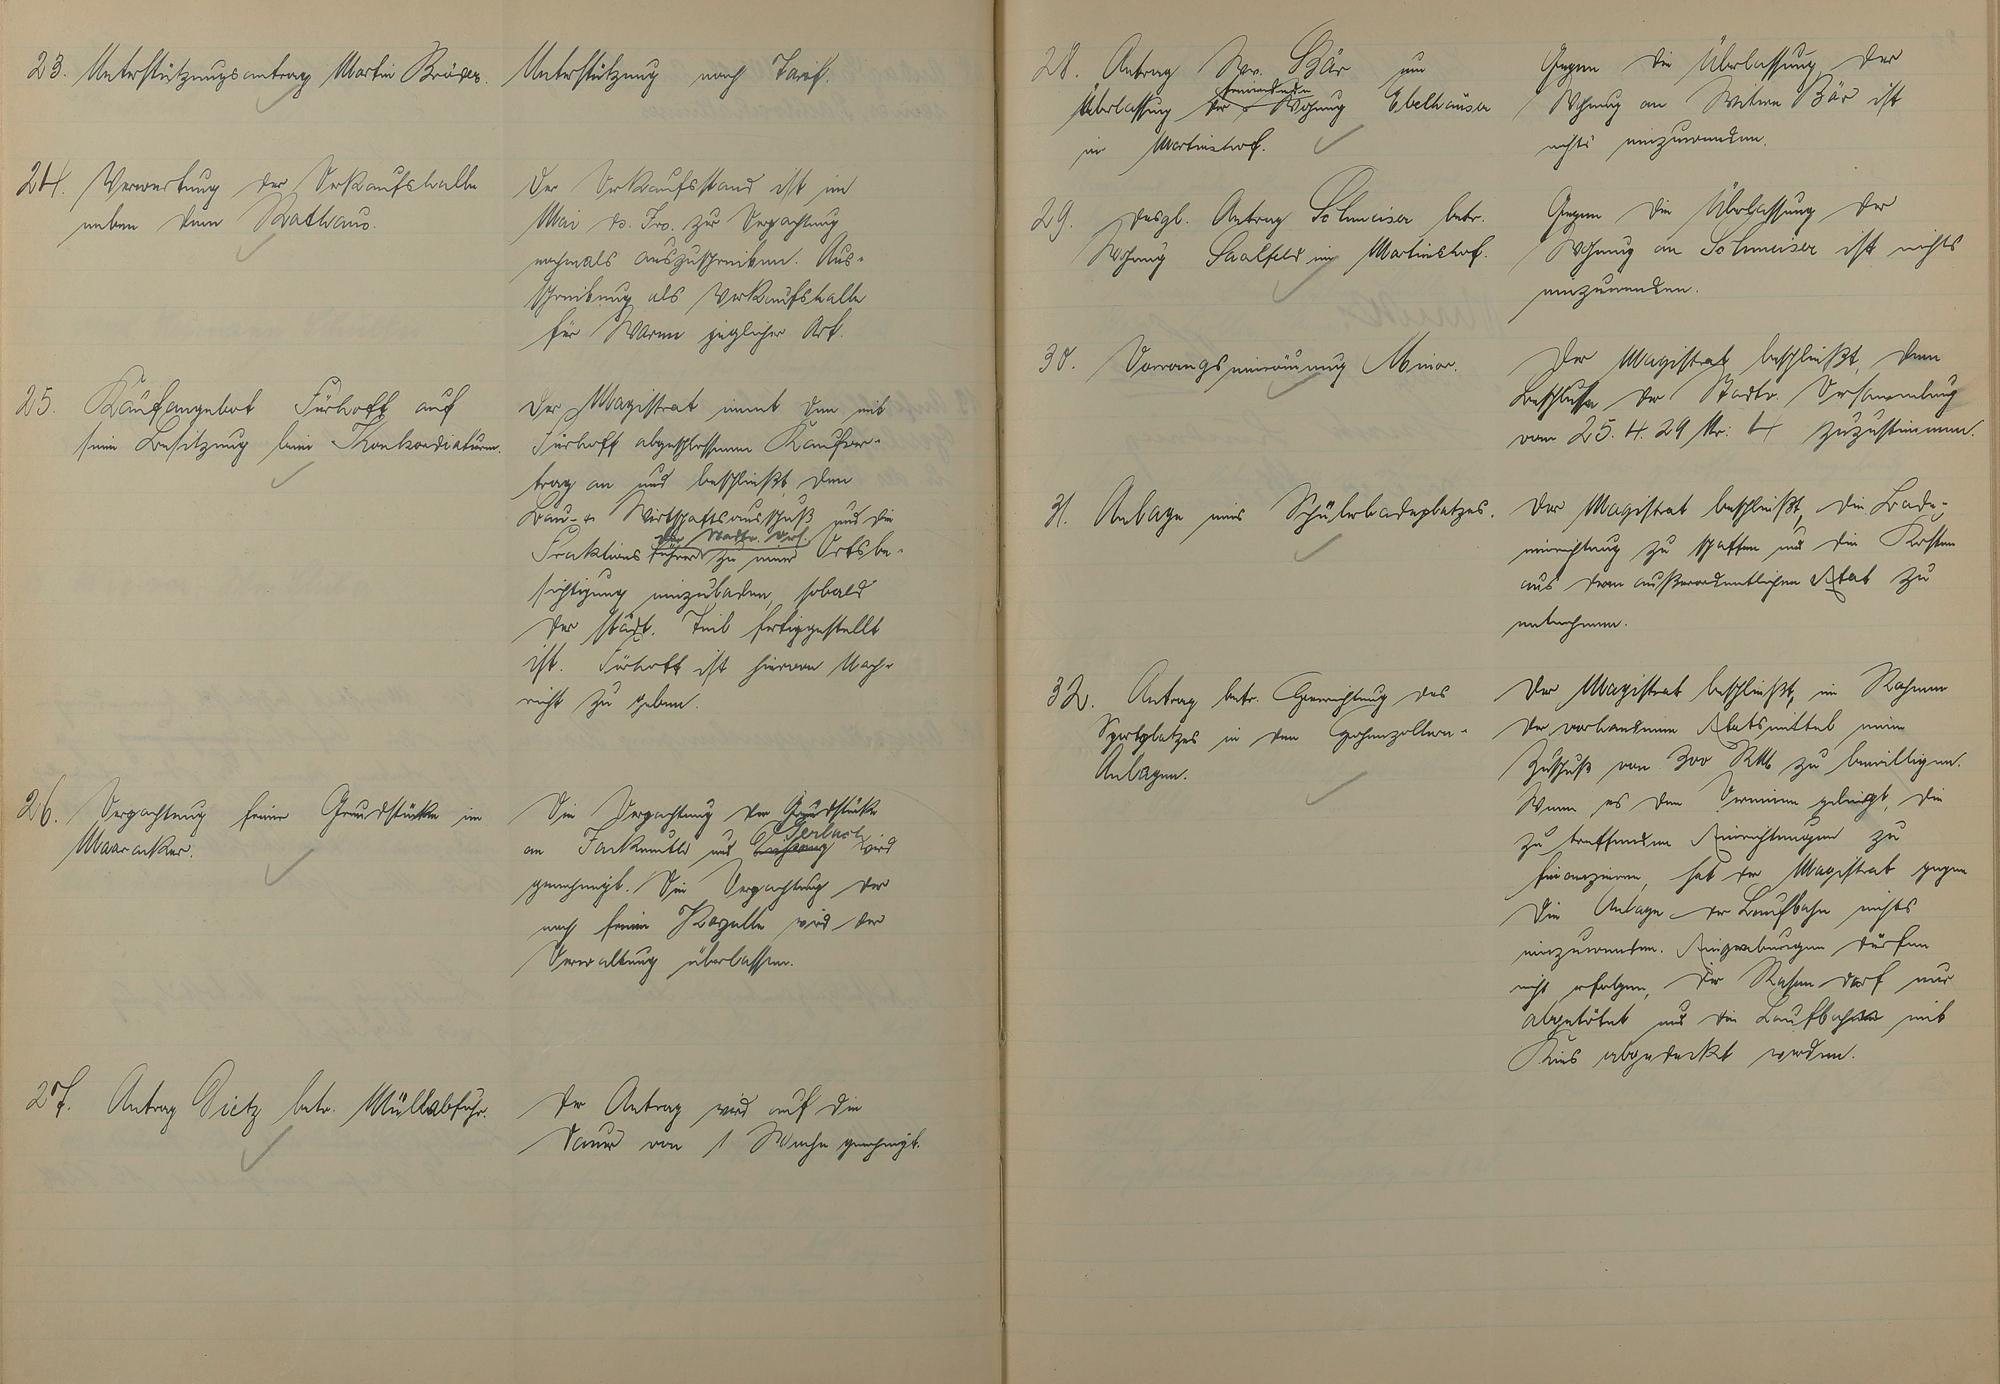 23. Unterstützungsantrag Martin Bröder.
Unterstützung nach Tarif.
24. Verwertung der Verkaufshalle
neben dem Rathaus.
Der Verkaufsstand ist im
Mai ds. Jrs. zur Verpachtung
nochmals auszuschreiben. Aus-
schreibung als Verkaufshalle
für Waren jeglicher Art.
25. Kaufangebot Fürhoff auf
seine Besitzung beim Konkordiaturm.
Der Magistrat nimmt den mit
Fürhoff abgeschlossenen Kaufver-
trag an und beschließt, den
Bau- u. Wirtschaftsausschuß und die
der Stadtv. Vers.
Fraktionsführer zu einer Ortsbe-
sichtigung einzuladen, sobald
der städt. Teil fertiggestellt
ist. Fürhoff ist hiervon Nach-
richt zu geben.
26. Verpachtung freier Grundstücke im
Maaracker.
Die Verpachtung der Grundstücke
an Fackeneller und Gerlach wird
genehmigt. Die Verpachtung der
noch freien Parzelle wird der
Verwaltung überlassen.
27. Antrag Dietz betr. Müllabfuhr.
Der Antrag wird auf die
Dauer von 1 Woche genehmigt.
28. Antrag Ww. Bär um
Überlassung der freiwerdenden Wohnung Ebelhäuser
im Martinshof.
Gegen die Überlassung der
Wohnung an Witwe Bär ist
nichts einzuwenden.
29. Desgl. Antrag Schmeiser betr.
Wohnung Saalfeld im Martinshof.
Gegen die Überlassung der
Wohnung an Schmeiser ist nichts
einzuwenden.
30. Vorrangseinräumung Minor.
Der Magistrat beschließt, dem
Beschlusse der Stadtv. Versammlung
vom 25.4.29 Nr: 4 zuzustimmen.
31. Anlage eines Schülerbadeplatzes.
Der Magistrat beschließt, die Bade-
einrichtung zu schaffen und die Kosten
aus dem außerordentlichen Etat zu
entnehmen.
32. Antrag betr. Herrichtung des
Sportplatzes in den Hohenzollern-
Anlagen.
Der Magistrat beschließt, im Rahmen
der vorhandenen Etatsmittel einen
Zuschuß von 300 RM zu bewilligen.
Wenn es den Vereinen gelingt, die
zu treffenden Einrichtungen zu
finanzieren, hat der Magistrat gegen
die Anlage der Laufbahn nichts
einzuwenden. Eingrabungen dürfen
nicht erfolgen, der Rasen darf nur
abgetötet und die Laufbahn mit
Kies abgedeckt werden.